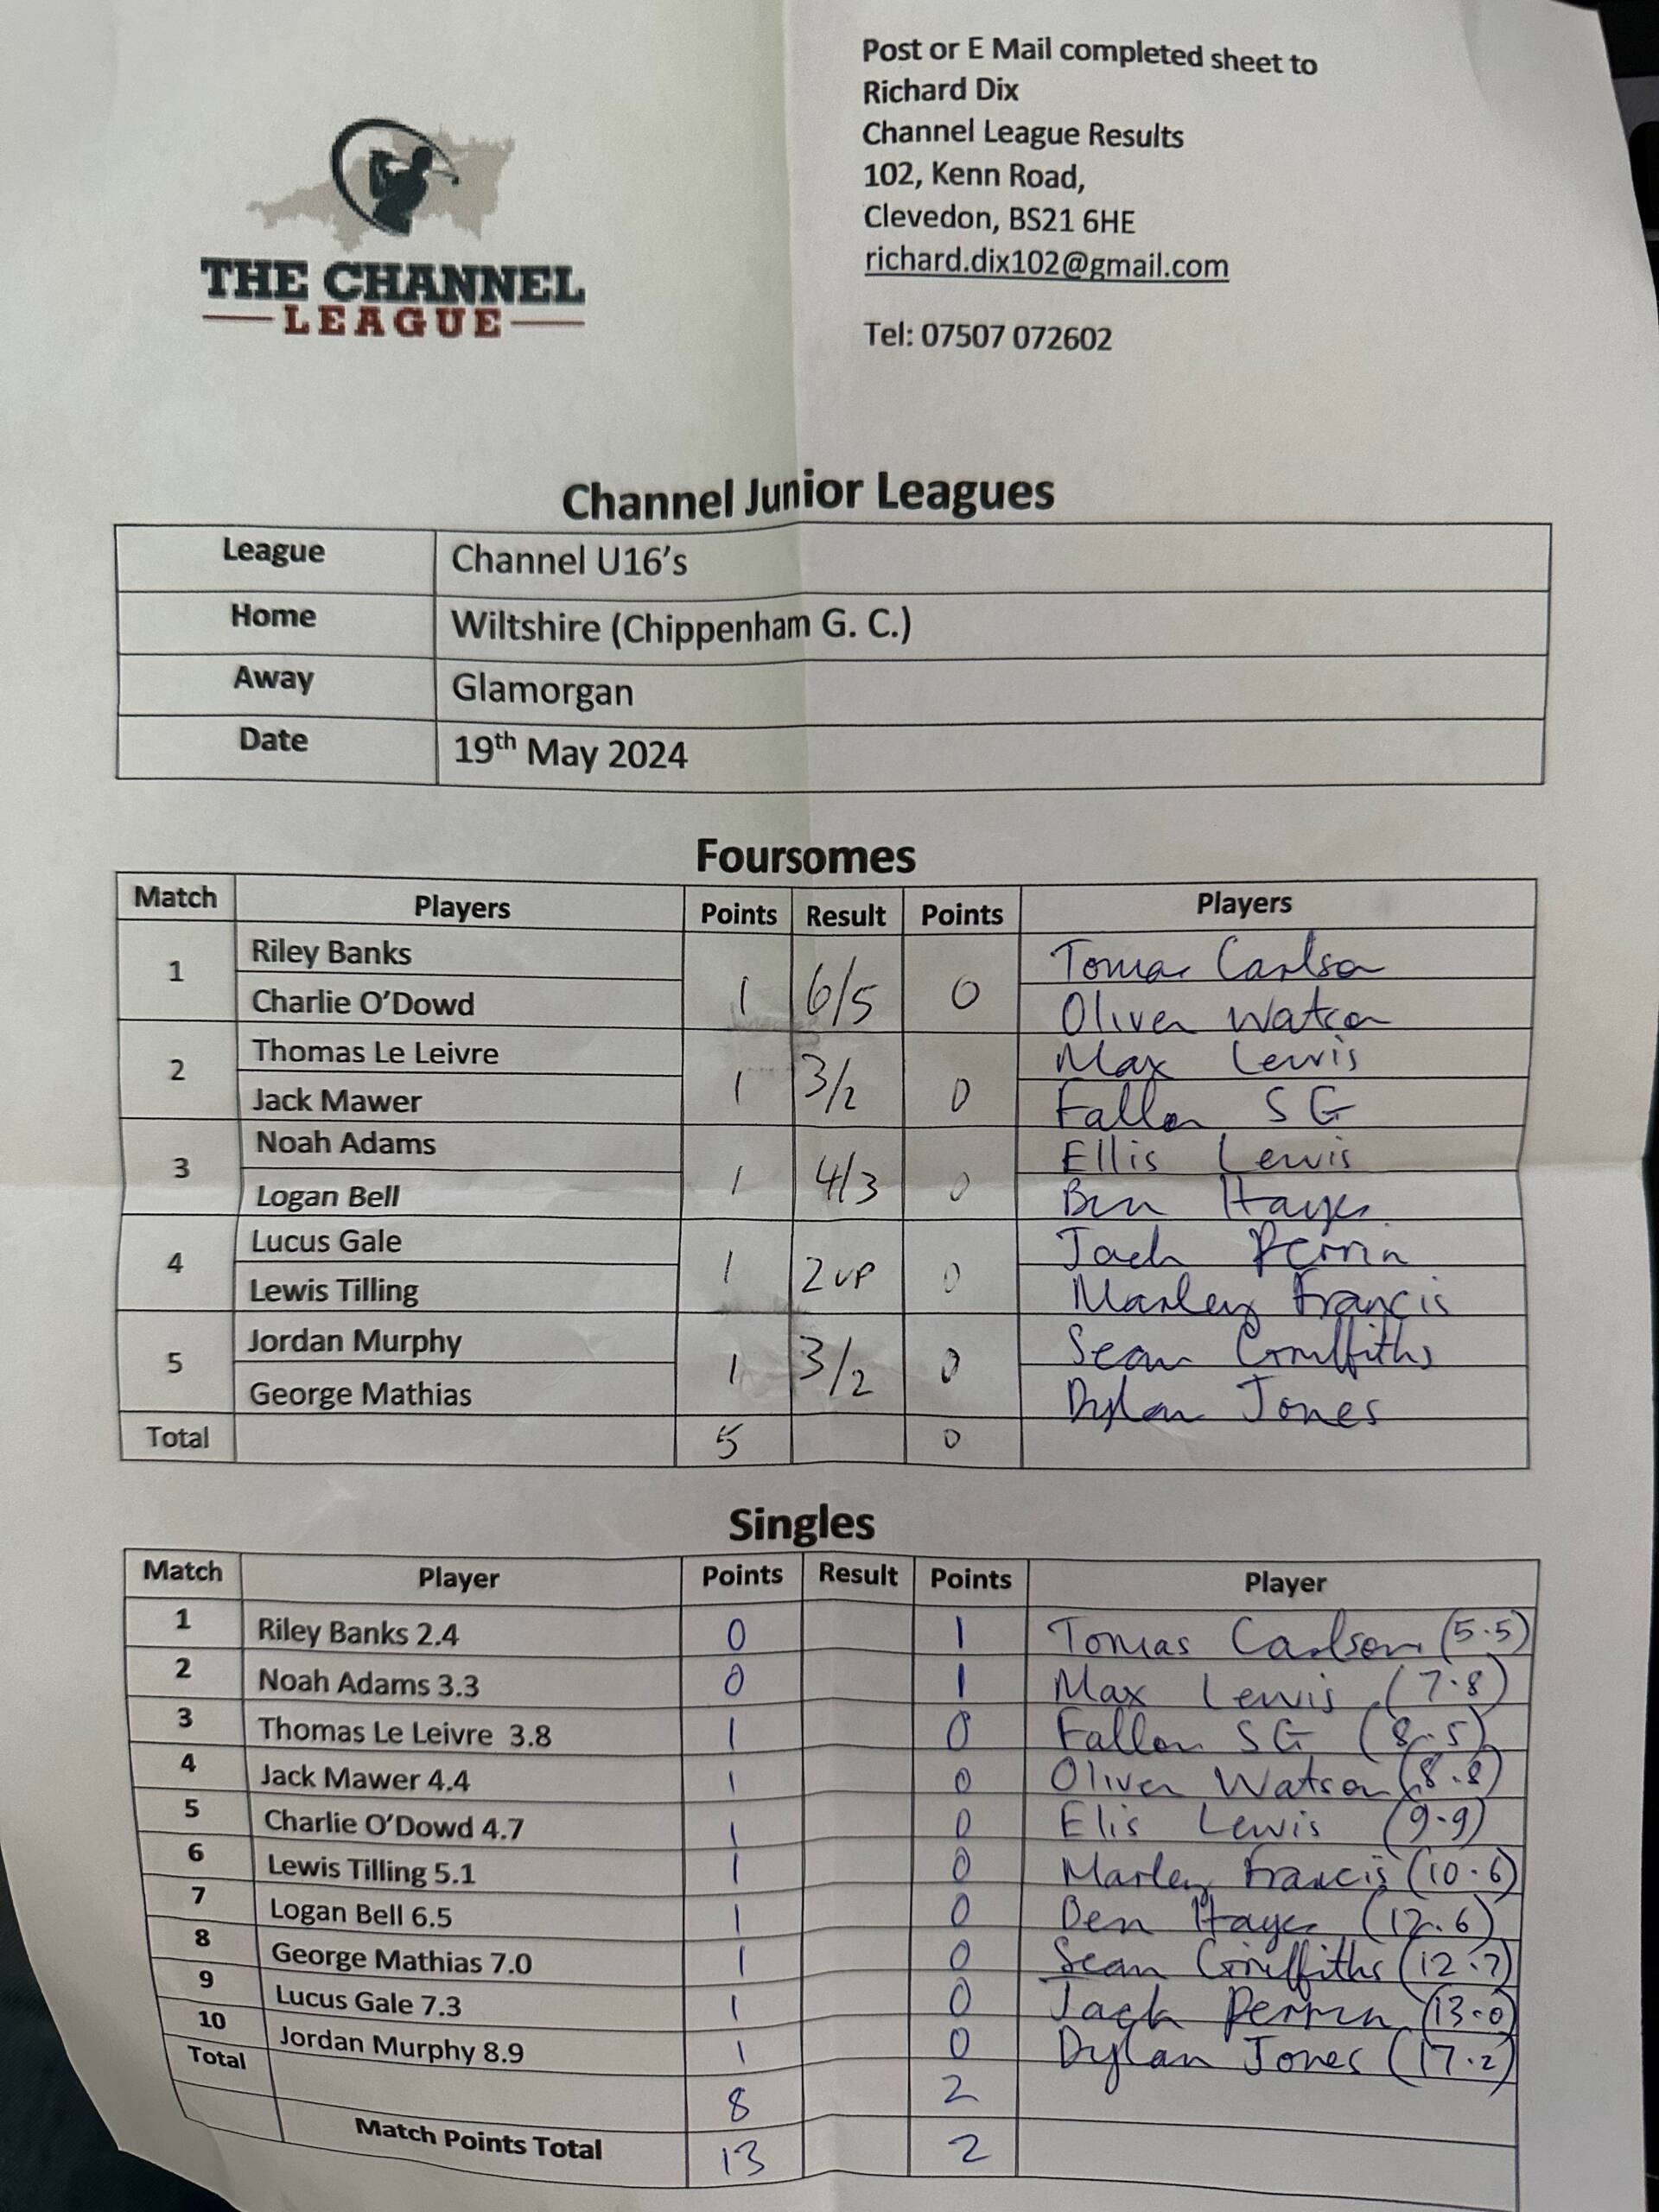 THE CHANNEL
LEAGUE
Post or E Mail completed sheet to
Richard Dix
Channel League Results
102, Kenn Road,
Clevedon, BS21 6HE
richard.dix102@gmail.com
Tel: 07507 072602
Channel Junior Leagues
League Channel U16's
Home Wiltshire (Chippenham G. C.)
Away Glamorgan
Date 19th May 2024
Foursomes
Match Players Points Result Points Players
1 Riley Banks 1 6/5 0 Tomas Carlson
Charlie O'Dowd Oliver Watson
2 Thomas Le Leivre 1 3/2 0 Max Lewis
Jack Mawer Fallon SG
3 Noah Adams 1 4/3 0 Ellis Lewis
Logan Bell Ben Hayes
4 Lucus Gale 1 2 UP 0 Jack Perrin
Lewis Tilling Marley Francis
5 Jordan Murphy 1 3/2 0 Sean Griffiths
George Mathias Dylan Jones
Total 5 0
Singles
Match Player Points Result Points Player
1 Riley Banks 2.4 0 1 Tomas Carlson (5.5)
2 Noah Adams 3.3 0 1 Max Lewis (7.8)
3 Thomas Le Leivre 3.8 1 0 Fallon SG (8.5)
4 Jack Mawer 4.4 1 0 Oliver Watson (8.8)
5 Charlie O'Dowd 4.7 1 0 Elis Lewis (9.9)
6 Lewis Tilling 5.1 1 0 Marley Francis (10.6)
7 Logan Bell 6.5 1 0 Ben Hayes (12.6)
8 George Mathias 7.0 1 0 Sean Griffiths (12.7)
9 Lucus Gale 7.3 1 0 Jack Perrin (13.0)
10 Jordan Murphy 8.9 1 0 Dylan Jones (17.2)
Total 8 2
Match Points Total 13 2